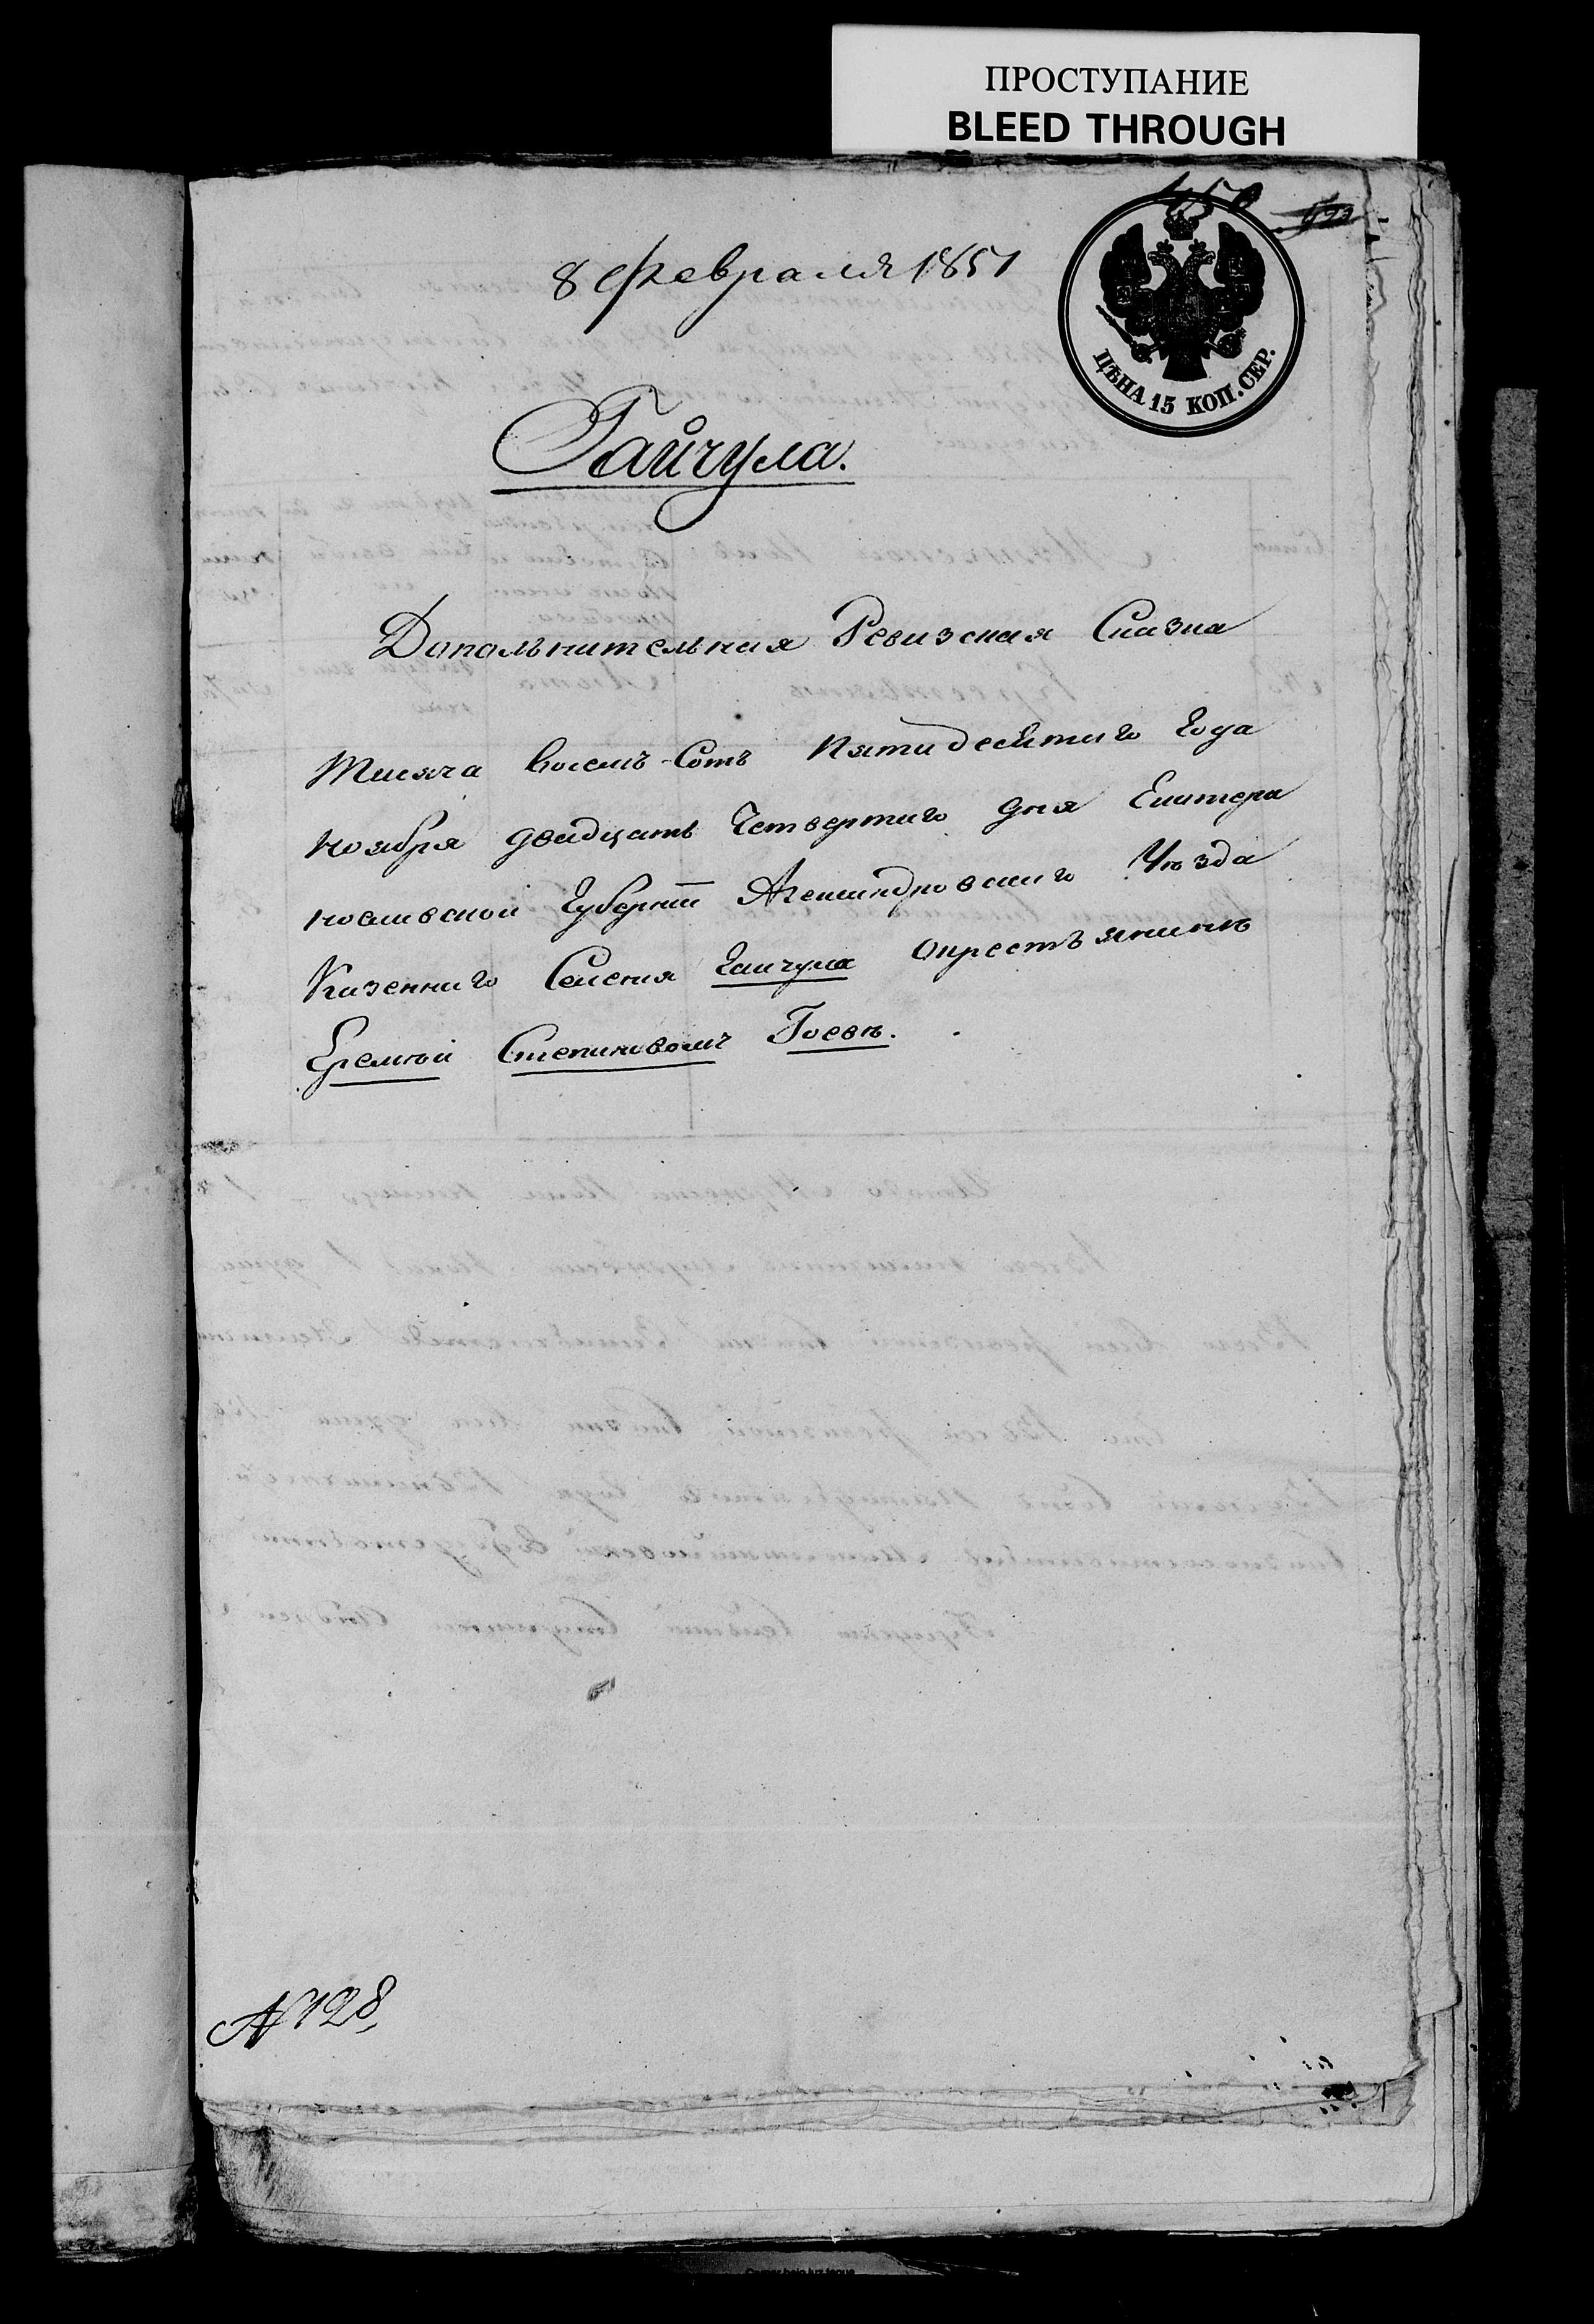 ПРОСТУПАНИЕ
BLEED THROUGH
450
8 февраля 1851
ЦѢНА 15 КОП. СЕР.
Гайчула.
Дополнительная Ревизская Сказка
Тисяча Восемъ-Сотъ пятидесятаго Года
ноября двадцать Четвертаго дня Екатера
нославской Губернiи Александровскаго Уѣзда
Казеннаго Селенiя Гайчула окрестъянинѣ
Еремѣй Степановомъ Гоевѣ.
№128,